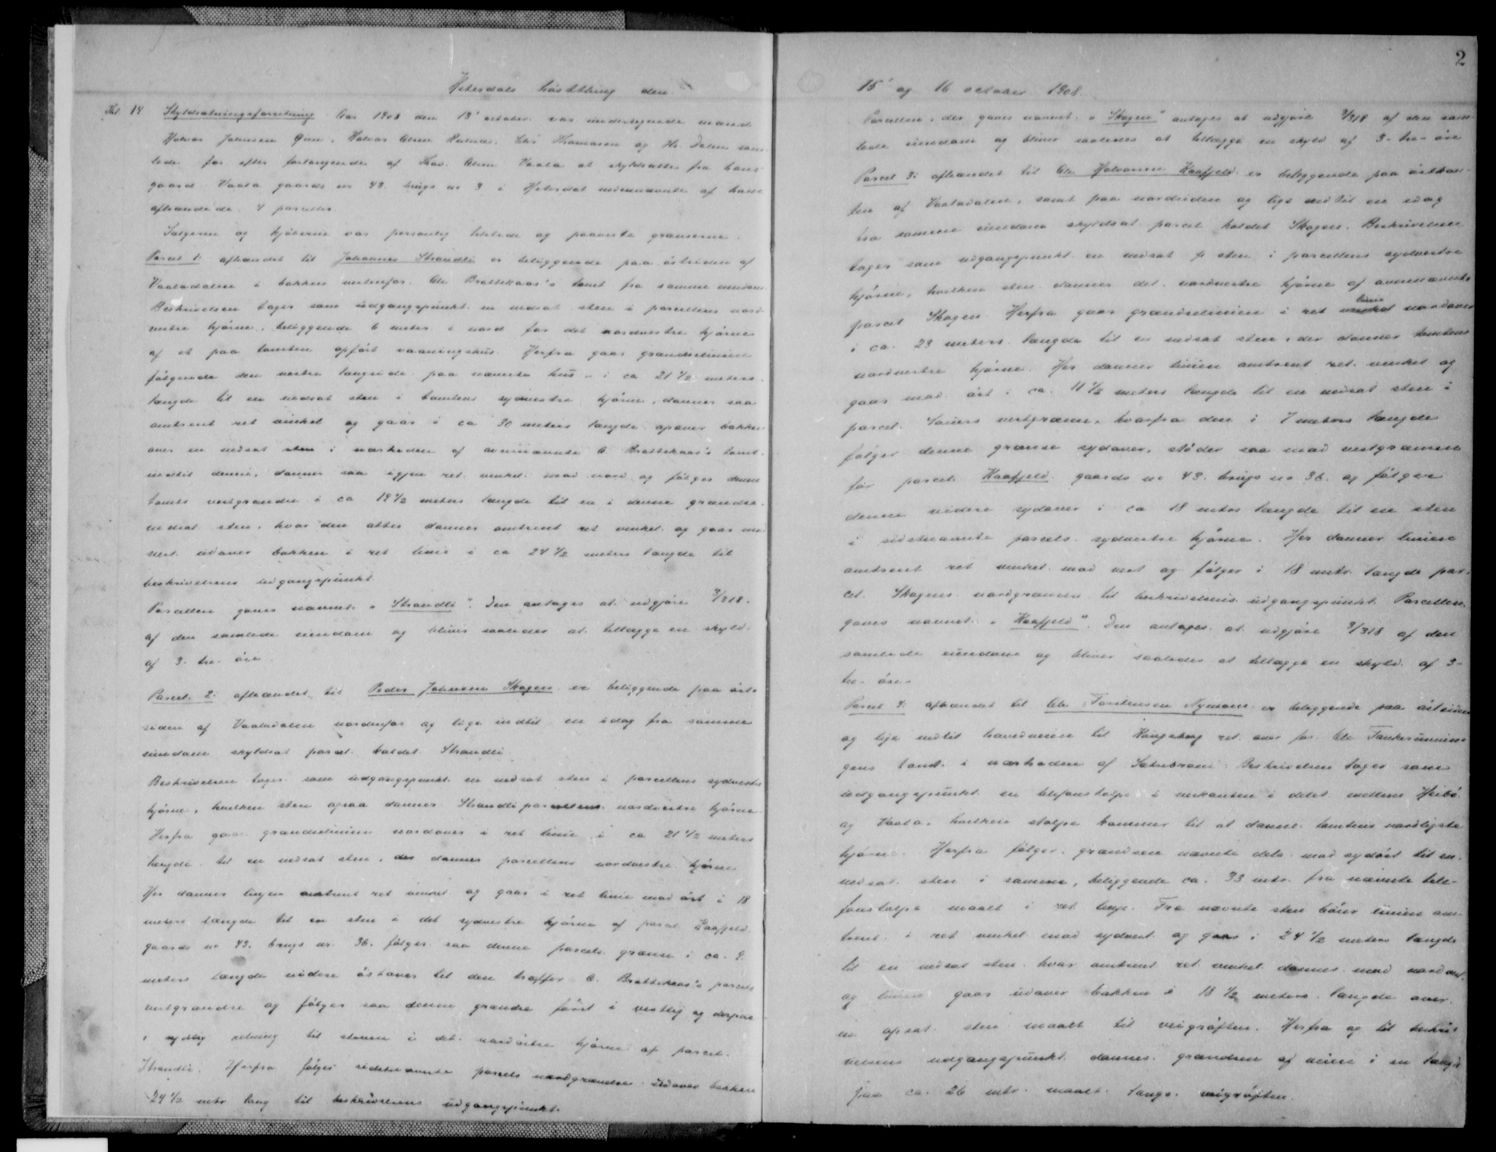 Hitterdals hösttthing den
No 14 Skyldsætningsforretning Aar 1908 den 13' october var undertegnede mænd
Halvor Johnsen Halvor Olsen Lars Thomassen og H. Dalen sam-
lede for efter forlangende af Hav. Olsen Vaala at skyldsætte fra hans
gaard Vaala gaards nr 43 brugs nr 3 i Hiterdal nedennævnte af ham
afhændede 4 parceller
Sælgeren og kjöberne var personlig tilstede og paaviste grænserne.
Parcel 1: afhændet til Johannes Strandli er beliggende paa östsiden af
Vaaladalen i bakken Ole Brattekaas's tomt fra samme eiendom
Beskrivelsen tages som udgangspunkt en nedsat sten i parcellens nord-
vestre hjörne, beliggende 6 meter i nord for det nordvestre hjörne
af et paa tomten opfört vaaningshus. Herfra gaar grændselinien
fölgende den vestre langside paa nævnte hus i ca 21 1/2 meters
længde til en nedsat sten i tomtens sydvestre hjörne, danner saa
omtrent ret vinkel og gaar i ca 30 meters længde opover bakken
over en nedsat sten i nærheden af ovennævnte O. Brattekaas's tomt
indtil denne, danner saa igjen ret vinkel mod nord og fölger denne
tomts vestgrændse i ca 19 1/2 meters længde til en i denne grændse
nedsat sten, hvor den atter danner omtrent ret vinkel og gaar mod
vest udover bakken i ret linie i ca 24 1/2 meters længde til
beskrivelsens udgangspunkt
Parcellen gives navnet „Strandli". Den antages at udgjöre 3/318
af den samlede eiendom og bliver saaledes at tillægge en skyld
af 3 tre öre
Parcel 2: afhændet til Peder Johnsen Skogen er beliggende paa öst-
siden af Vaaladalen nordenfor og lige indtil en idag fra samme
eiendom skyldsat parcel kaldet Strandli
Beskrivelsen tages som udgangspunkt en nedsat sten i parcellens sydvestre
hjörne, hvilken sten ogsaa danner Strandli parcellens nordvestre hjörne
Herfra gaar grændselinien nordover i ret linie i ca 21 1/2 meters
længde til en nedsat sten, der danner parcellens nordvestre hjörne
Her danner linjen omtrent ret vinkel og gaar i ret linie mod öst i 18
meters længde til en sten i det sydvestre hjörne af parcel Haafjeld
gaards nr 43. brugs nr 36. fölger saa denne parcels grænse i ca. 9
meters længde videre östover til den træffer O. Brattekaas's parcels
vestgrændse og fölger saa denne grændse först i vestlig og derpaa
i sydlig retning til stenen i det nordöstre hjörne af parcel
Strandli. Herfra fölges sidstnævnte parcels nordgrændse udover bakken
24 1/2 mtr lang til beskrivelsens udgangspunkt.
2
15' og 16 october 1908.
Parcellen, der gives navnet „Skogen" antages at udgjöre 3/318 af den sam-
lede eiendom og bliver saaledes at tillægge en skyld af 3 - tre - öre
Parcel 3: afhændet til Ole Halvorsen Haafjeld er beliggende paa östkan-
ten af Vaaladalen, samt paa nordsiden og lige indtil en idag
fra samme eiendom skyldsat parcel kaldet Skogen. Beskrivelsen
tages som udgangspunkt en nedsat sten i parcellens sydvestre
hjörne, hvilken sten danner det nordvestre hjörne af ovennævnte
parcel Skogen Herfra gaar grændselinien i ret linie nordover
i ca. 23 meters længde til en nedsat sten, der danner tomtens
nordvestre hjörne. Her danner linien omtrent ret vinkel og
gaar mod öst i ca. 11 1/2 meters længde til en nedsat sten i
parcel vestgrænse, hvorfra den i 7 meters længde
fölger denne grænse sydover, stöder saa mod vestgrænsen
for parcel Haafjeld gaards nr 43. brugs nr 36. og fölger
denne videre sydover i ca 18 meters længde til en sten
i sidstnævnte parcels sydvestre hjörne. Her danner linien
omtrent ret vinkel mod vest og fölger i 18 mtr. længde par-
cel Skogens nordgrændse til beskrivelsens udgangspunkt. Parcellen
gives navnet „Haafjeld". Den antages at udgjöre 3/318 af den
samlede eiendom og bliver saaledes at tillægge en skyld af 3 -
tre - öre
Parcel 4: afhændet til Ole Torstensen Nymoen er beliggende paa östsiden
og lige indtil hovedveien til Kongsberg ret over for Ole
gens tomt i nærheden af Sætrebroen Beskrivelsen tages som
udgangspunkt en telefonstolpe i veikanten i delet mellem
og Vaala, hvilken stolpe kommer til at danne tomtens nordligste
hjörne. Herfra fölger grændsen nævnte dele mod sydöst til en
nedsat sten i samme, beliggende ca. 33 mtr. fra nævnte tele-
fonstolpe maalt i ret linje. Fra nævnte sten böier linien om-
trent i ret vinkel mod sydvest og gaar i 24 1/2 meters længde
til en nedsat sten hvor omtrent ret vinkel dannes mod nordvest,
og linien gaar udover bakken i 18 1/2 meters længde over
en opsat sten maalt til veigröften. Herfra og til beskri-
velsens udgangspunkt dannes grændsen af veien i en længde
ca. 26 mtr. maalt langs veigröften.